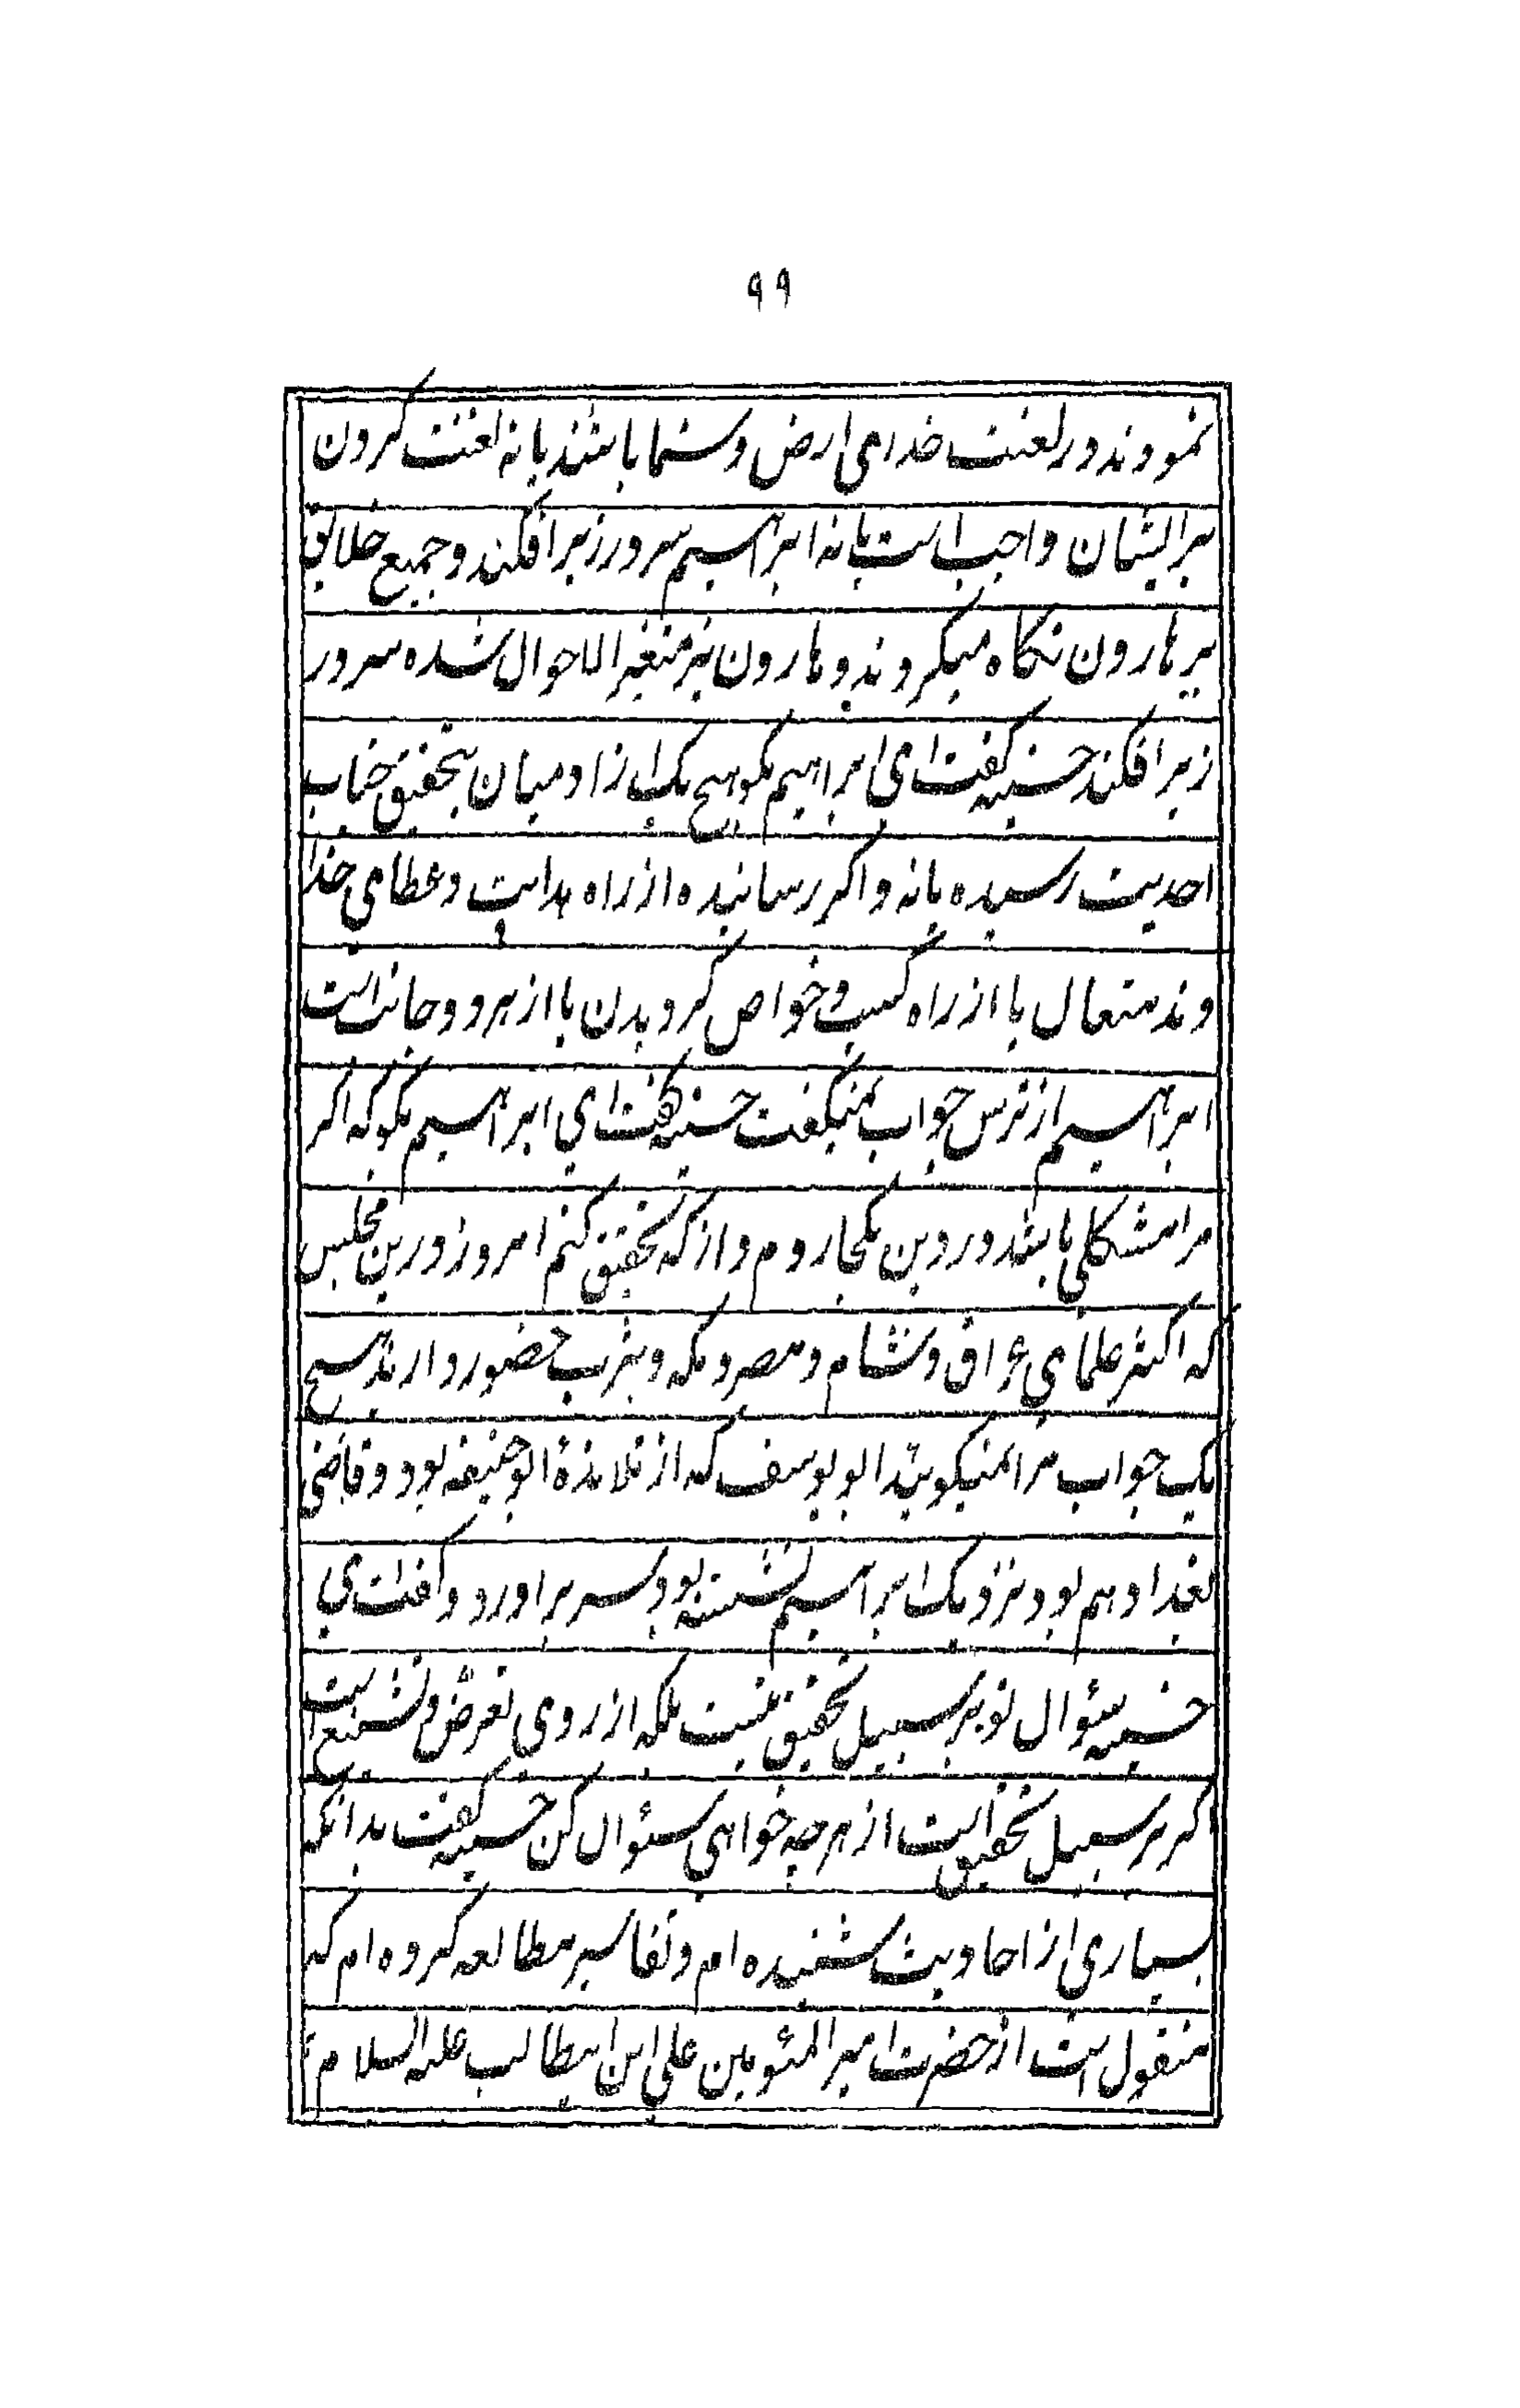 ۹۹
نمودند در لعنت خدای ارض و سما باشند یا نه لعنت کردن
بر ایشان واجب است یا نه ابراهیم سر در زیر افکند و جمیع خلایق
بر هارون نگاه میکردند و هارون نیز متغیر الاحوال شده سر در
زیر افکند حسنیه گفت ای ابراهیم بگو هیچ یک از ادمیان بتحقیق جناب
احدیت رسیده یا نه و اگر رسانیده از راه هدایت و عطای خدا
وند متعال یا از راه کسب و خواص گرویدن یا از هر دو جانب است
ابراهیم از ترس جواب نمیگفت حسنیه گفت ای ابراهیم بگو که اگر
مرا مشکلی باشد در دین بکجا روم و از که تحقیق کنم امروز درین مجلس
که اکثر علمای عراق و شام و مصر و مکه و یثرب حضور دارند هیچ
یک جواب مرا نمیگویند ابو یوسف که از تلامذهٔ ابو حنیفه بود و قاضی
بغداد هم بود نزدیک ابراهیم نشسته بود سر بر اورد و گفت ای
حسنیه سئوال تو بر سبیل تحقیق نیست بلکه از روی تعرض و تشنیع است
اگر بر سبیل تحقیق است از هر چه خواهی سئوال کن حسنیه گفت بدانکه
بسیاری از احادیث شنیده ام و تفاسیر مطالعه کرده ام که
منقول است از حضرت امیر المئومنین علی ابن ابیطالب علیه السلام